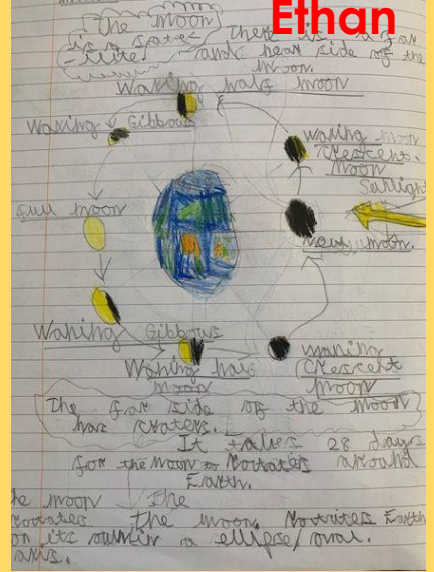 Ethan
The moon
is a satec
-llite
There is a far
and near side of the
moon.
Waxing half moon
Waxing Gibbous
waxing moon
Crescent.
Moon
Sunlight
full moon
New moon.
Waning Gibbous
Waning half
moon
waning
Crescent
Moon
The far side of the moon
has craters.
It takes 28 days
for the moon to rotates around
Earth.
he moon
rotates
on its own
axis.
The
the moon. Earth
in a ellipse/oval.